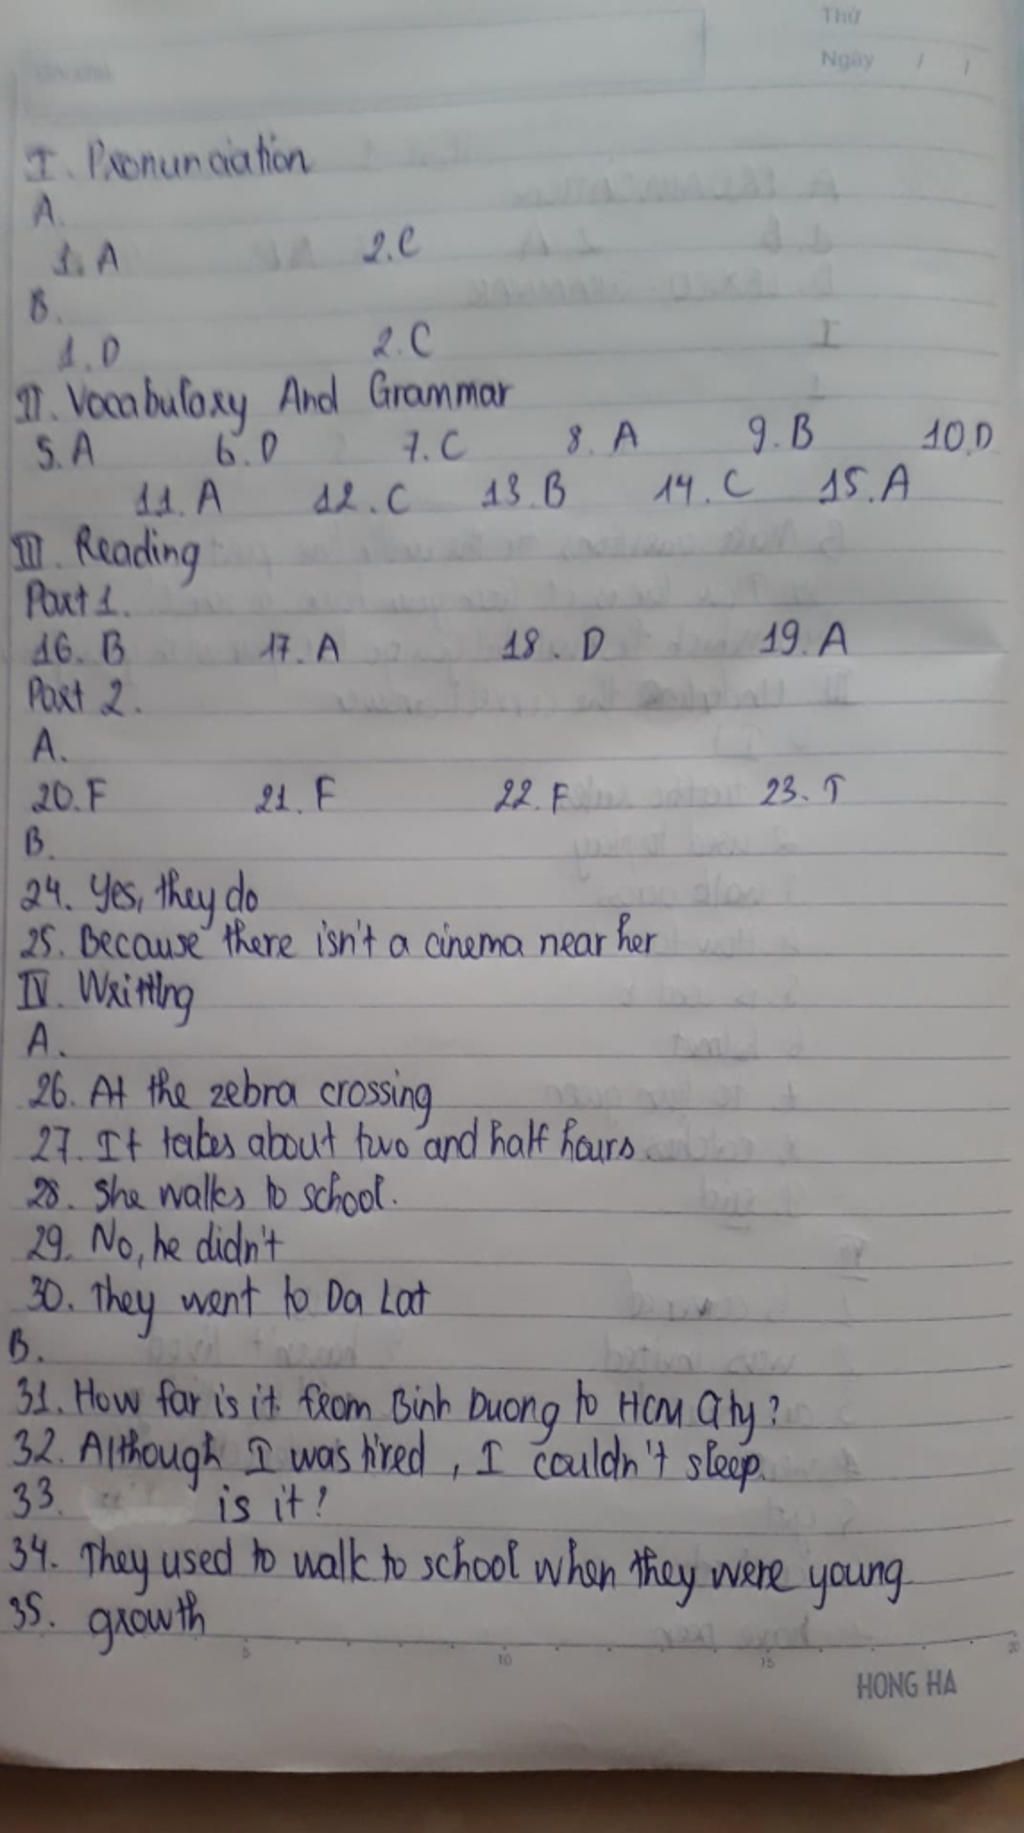 Thứ
Ngày / /
I. Pronunciation
A.
1. A 2. C
B.
1. D 2. C
II. Vocabulary And Grammar
5. A 6. D 7. C 8. A 9. B 10. D
11. A 12. C 13. B 14. C 15. A
III. Reading
Part 1.
16. B 17. A 18. D 19. A
Part 2.
A.
20. F 21. F 22. F 23. T
B.
24. Yes, they do
25. Because there isn't a cinema near her
IV. Writting
A.
26. At the zebra crossing
27. It takes about two and half hours
28. She walks to school.
29. No, he didn't
30. They went to Da Lat
B.
31. How far is it from Binh Duong to HCM City?
32. Although I was tired, I couldn't sleep.
33. is it?
34. They used to walk to school when they were young
35. growth
5 10 15 20
HONG HA